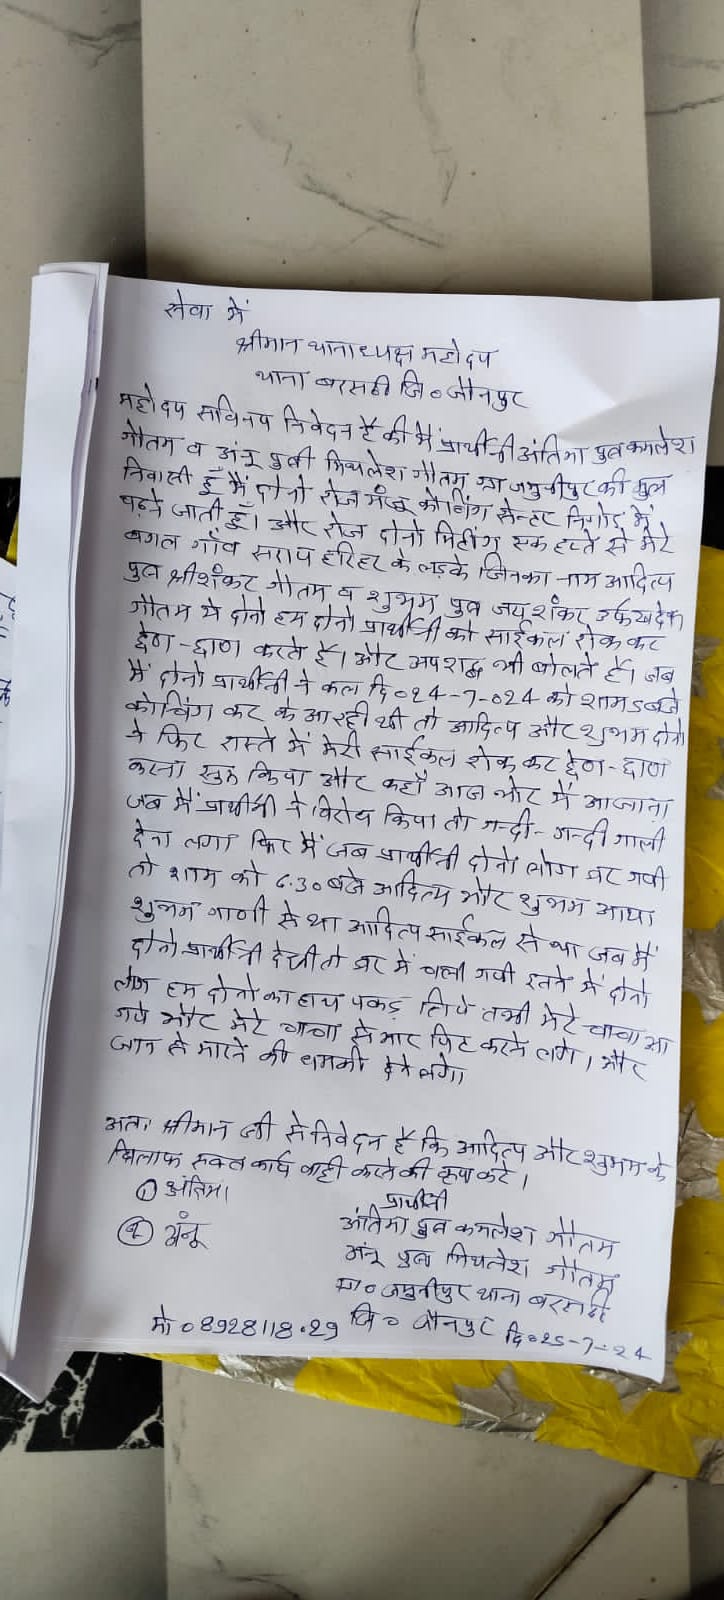 सेवा में
श्रीमान थानाध्यक्ष महोदय
थाना बरसठी जि०जौनपुर
महोदय सविनय निवेदन है की मैं प्रार्थीनी अंतिमा पुत्र कमलेश
गौतम व अंनू पुत्री मिथलेश गौतम ग्रा जमुनीपुर की मुल
निवासी हुँ मैं दोनो रोज मंजू कोचिंग सेन्टर निगोह में
पढ़ने जाती हुँ। और रोज दोनो मिटींग एक हप्ते से मेरे
बगल गाँव सराय हरिहर के लड़के जिनका नाम आदित्य
पुत्र श्रीशंकर गौतम व शुभम पुत्र जयशंकर उर्फ
गौतम ये दोनो हम दोनो प्रार्थीनी को साईकल रोक कर
छेण-छाण करते हैं। और अपशब्द भी बोलते हैं। जब
मैं दोनो प्रार्थीनी ने कल दि०24-7-024 को शाम 5 बजे
कोचिंग कर के आ रही थी तो आदित्य और शुभम दोनो
ने फिर रास्ते में मेरी साईकल रोक कर छेण-छाण
करना सुरु किया और कहाँ आज भोर में आजाना
जब मैं प्रार्थीनी ने विरोध किया तो गन्दी-गन्दी गाली
देना लगा फिर मैं जब प्रार्थीनी दोनो लोग घर गयी
तो शाम को 6.30 बजे आदित्य और शुभम आया
शुभम गाणी से था आदित्य साईकल से था जब मैं
दोनो प्रार्थीनी देखी तो घर में चली गयी इतने में दोनो
लोग हम दोनो का हाथ पकड़ लिये तभी मेरे चाचा आ
गये और मेरे चाचा से मार पिट करने लगे। और
जान से मारने की धमकी देने लगे।
अतः श्रीमान जी से निवेदन है कि आदित्य और शुभम के
खिलाफ सक्त कार्य वाही करने की कृपा करे।
① अंतिमा
② अंनू
प्रार्थीनी
अंतिमा पुत्र कमलेश गौतम
अंनू पुत्र मिथलेश गौतम
ग्रा० जमुनीपुर थाना बरसठी
जि० जौनपुर दि०25-7-24
मो०8928118029